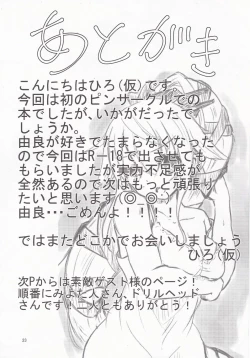 あとがき
こんにちはひろ(仮)です
今回は初のピンサークルでの
本でしたが、いかがだったで
しょうか。
由良が好きでたまらなくなった
ので今回はR-18で出させても
もらいましたが実力不足感が
全然あるので次はもっと頑張り
たいと思います(◎_◎;)
由良・・・ごめんよ！！！！
ではまたどこかでお会いしましょう
ひろ(仮)
次Pからは素敵ゲスト様のページ！
順番にみよた人さん、ドリルヘッド
さんです！二人ともありがとう！